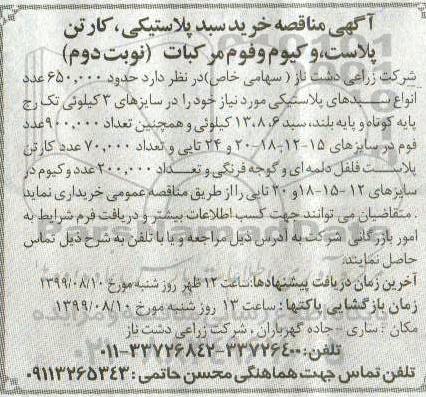 آگهی مناقصه خرید سبد پلاستیکی، کارتن
پلاست، وکیوم وفوم مرکبات (نوبت دوم)
شرکت زراعی دشت ناز ( سهامی خاص)در نظر دارد حدود ۶۵۰,۰۰۰عدد
انواع سبدهای پلاستیکی مورد نیاز خود را در سایزهای ۳ کیلوئی تک رج
پایه کوتاه و پایه بلند، سبد ۱۳،۸،۶ کیلوئی و همچنین تعداد ۹۰۰,۰۰۰عدد
فوم در سایزهای ۱۵-۱۲-۱۸-۲۰ و ۲۴ تایی و تعداد ۷۰,۰۰۰ عدد کارتن
پلاست فلفل دلمه ای و گوجه فرنگی و تعداد ۲۰۰,۰۰۰ عدد وکیوم در
سایزهای ۱۲-۱۵-۱۸و ۲۰ تایی رااز طریق مناقصه عمومی خریداری نماید
. متقاضیان می توانند جهت کسب اطلاعات بیشتر و دریافت فرم شرایط به
امور بازرگانی شرکت به آدرس ذیل مراجعه و یا با تلفن به شرح ذیل تماس
حاصل نمایند.
آخرین زمان دریافت پیشنهادها:ساعت ۱۲ ظهر روز شنبه مورخ ۱۳۹۹/۰۸/۱۰
زمان بازگشایی پاکتها : ساعت ۱۳ روز شنبه مورخ ۱۳۹۹/۰۸/۱۰
مکان : ساری - جاده گهرباران ، شرکت زراعی دشت ناز
تلفن: ۳۳۷۲۶۴۰۰-۳۳۷۲۶۸۴۲-۰۱۱
تلفن تماس جهت هماهنگی محسن حاتمی : ۰۹۱۱۳۲۶۵۳۴۳